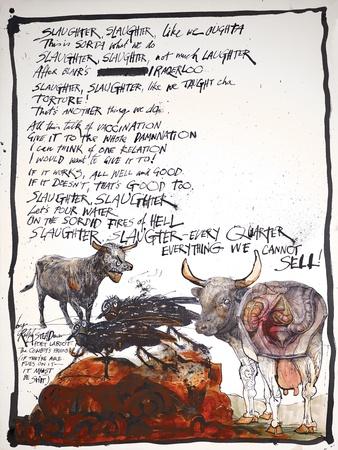 SLAUGHTER, SLAUGHTER, like we OUGHTA
This is SORTA what we do
SLAUGHTER, SLAUGHTER, not much LAUGHTER
After BLAIR'S IRAQERLOO
SLAUGHTER, SLAUGHTER, like we TAUGHT cha
TORTURE!
That's ANOTHER thing we do.
All this talk of VACCINATION
GIVE IT TO the WHOLE DAMNATION
I can think of ONE RELATION
I WOULD want to GIVE IT TO!
IF IT WORKS, ALL WELL and GOOD.
IF IT DOESN'T, THAT'S GOOD TOO.
SLAUGHTER, SLAUGHTER
Let's POUR WATER
ON THE SORDID FIRES of HELL
SLAUGHTER, SLAUGHTER - EVERY QUARTER
EVERYTHING WE CANNOT
SELL!
Ralph STEADman
POET
THE
IF THEY'RE ARE
FLIES ON IT -
IT MUST
BE SHIT!